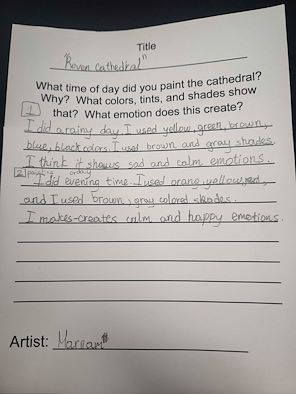 Title
"Roven Cathedral"
What time of day did you paint the cathedral?
Why? What colors, tints, and shades show
that? What emotion does this create?
1
I did a rainy day. I used yellow, green, brown,
blue, black colors. I used brown and gray shades.
I think it shows sad and calm emotions.
2 painting
I did evening time. I used orang, yellow, red,
and I used brown, gray colored shades.
I makes creates calm and happy emotions.
Artist: Mariam